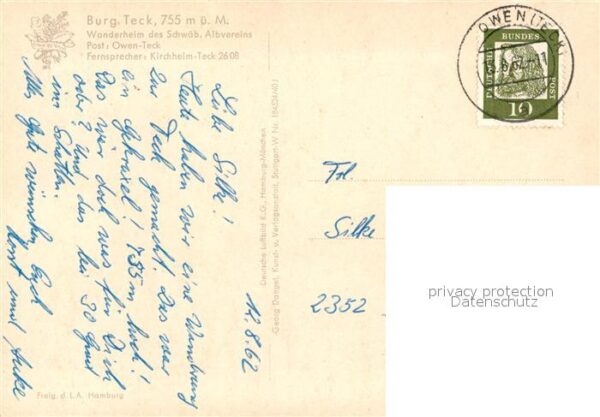 Burg Teck, 755 m ü. M.
Wanderheim des Schwäb. Albvereins
Post: Owen-Teck
Fernsprecher: Kirchheim-Teck 2608
OWEN (TECK)
DEUTSCHE BUNDESPOST
10
12.8.62
Liebe Silke!
Heute haben wir eine Wanderung
zur Teck gemacht. Das war
ein Gekraxel! 755m hoch!
Das wär doch was für Dich
oder? Und das bei 30 Grad
im Schatten.
Alles Gute wünschen Euch
Horst und Anke
Deutsche Luftbild K.G., Hamburg-München
Georg Dangel, Kunst- u. Verlagsanstalt, Stuttgart-W Nr.
Freig. d. L.A. Hamburg
Frl.
Silke
2352
privacy protection
Datenschutz